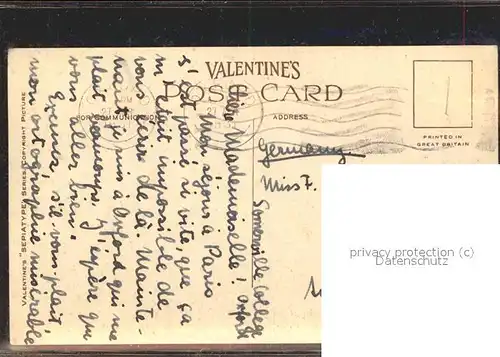 VALENTINE'S
POST CARD
FOR COMMUNICATION
ADDRESS
PRINTED IN
GREAT BRITAIN
VALENTINE'S "SEPIATYPE" SERIES. COPYRIGHT PICTURE
Somerville College
Oxford
Chère Mademoiselle!
Mon séjour à Paris
s'est passé si vite que ça
m'était impossible de
vous écrire de là. Mainte-
nant je suis à Oxford qui me
plaît beaucoup. J'espère que
vous allez bien.
Excusez, s'il vous plaît,
mon ortographie misérable
Germany
Miss F.
privacy protection (c)
Datenschutz